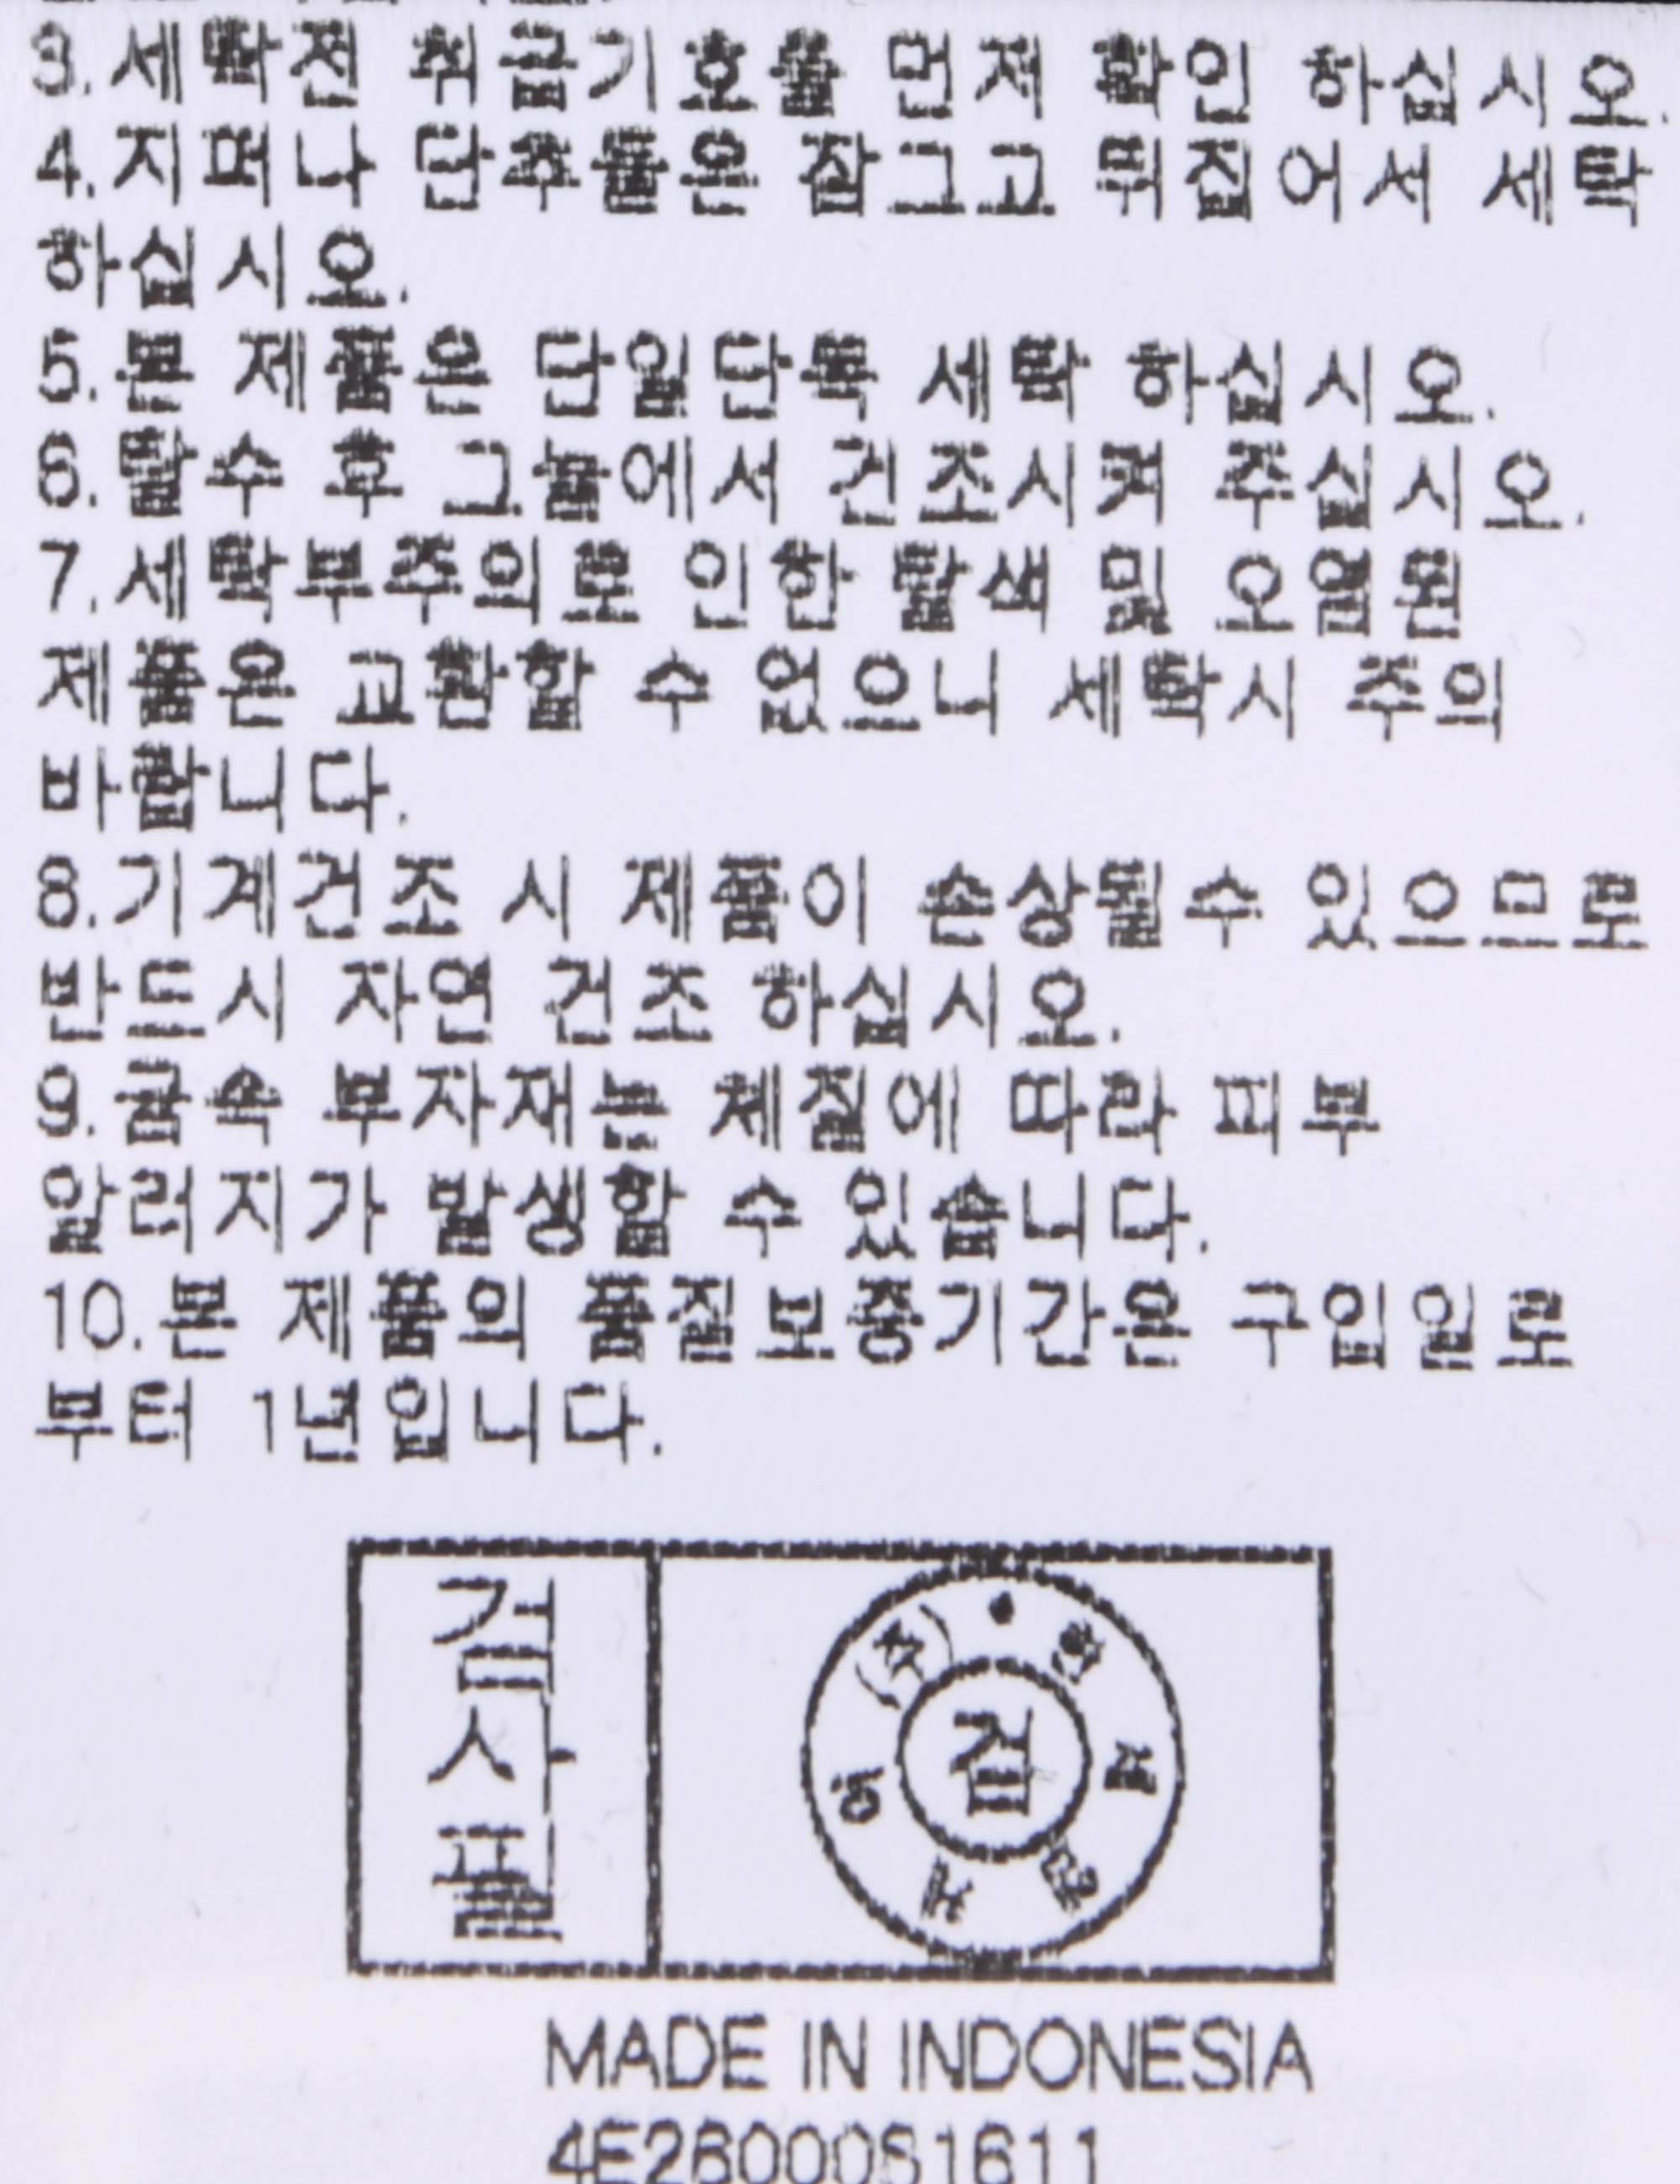 3.세탁전 취급기호를 먼저 확인 하십시오.
4.지퍼나 단추들은 잠그고 뒤집어서 세탁
하십시오.
5.본 제품은 단일단독 세탁 하십시오.
6.탈수 후 그늘에서 건조시켜 주십시오.
7.세탁부주의로 인한 탈색 및 오염된
제품은 교환할 수 없으니 세탁시 주의
바랍니다.
8.기계건조 시 제품이 손상될수 있으므로
반드시 자연 건조 하십시오.
9.금속 부자재는 체질에 따라 피부
알러지가 발생할 수 있습니다.
10.본 제품의 품질보증기간은 구입일로
부터 1년입니다.
검사필
검
MADE IN INDONESIA